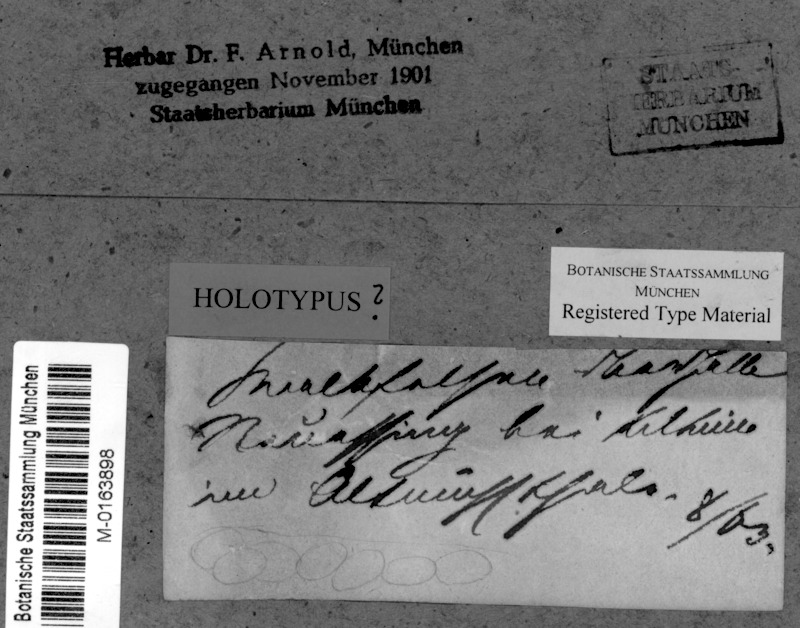 Herbar Dr. F. Arnold, München
zugegangen November 1901
Staatsherbarium München
STAATS-
HERBARIUM
MÜNCHEN
HOLOTYPUS ?
BOTANISCHE STAATSSAMMLUNG
MÜNCHEN
Registered Type Material
Botanische Staatssammlung München
M-0163898
Neuessing bei Kelheim
im Altmühlthale. 8/63.